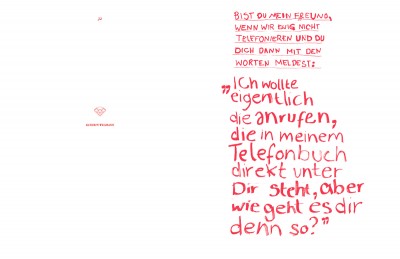 BIST DU MEIN FREUND,
WENN WIR EWIG NICHT
TELEFONIEREN UND DU
DICH DANN MIT DEN
WORTEN MELDEST:
„Ich wollte
eigentlich
die anrufen,
die in meinem
Telefonbuch
direkt unter
Dir steht, aber
wie geht es dir
denn so?”